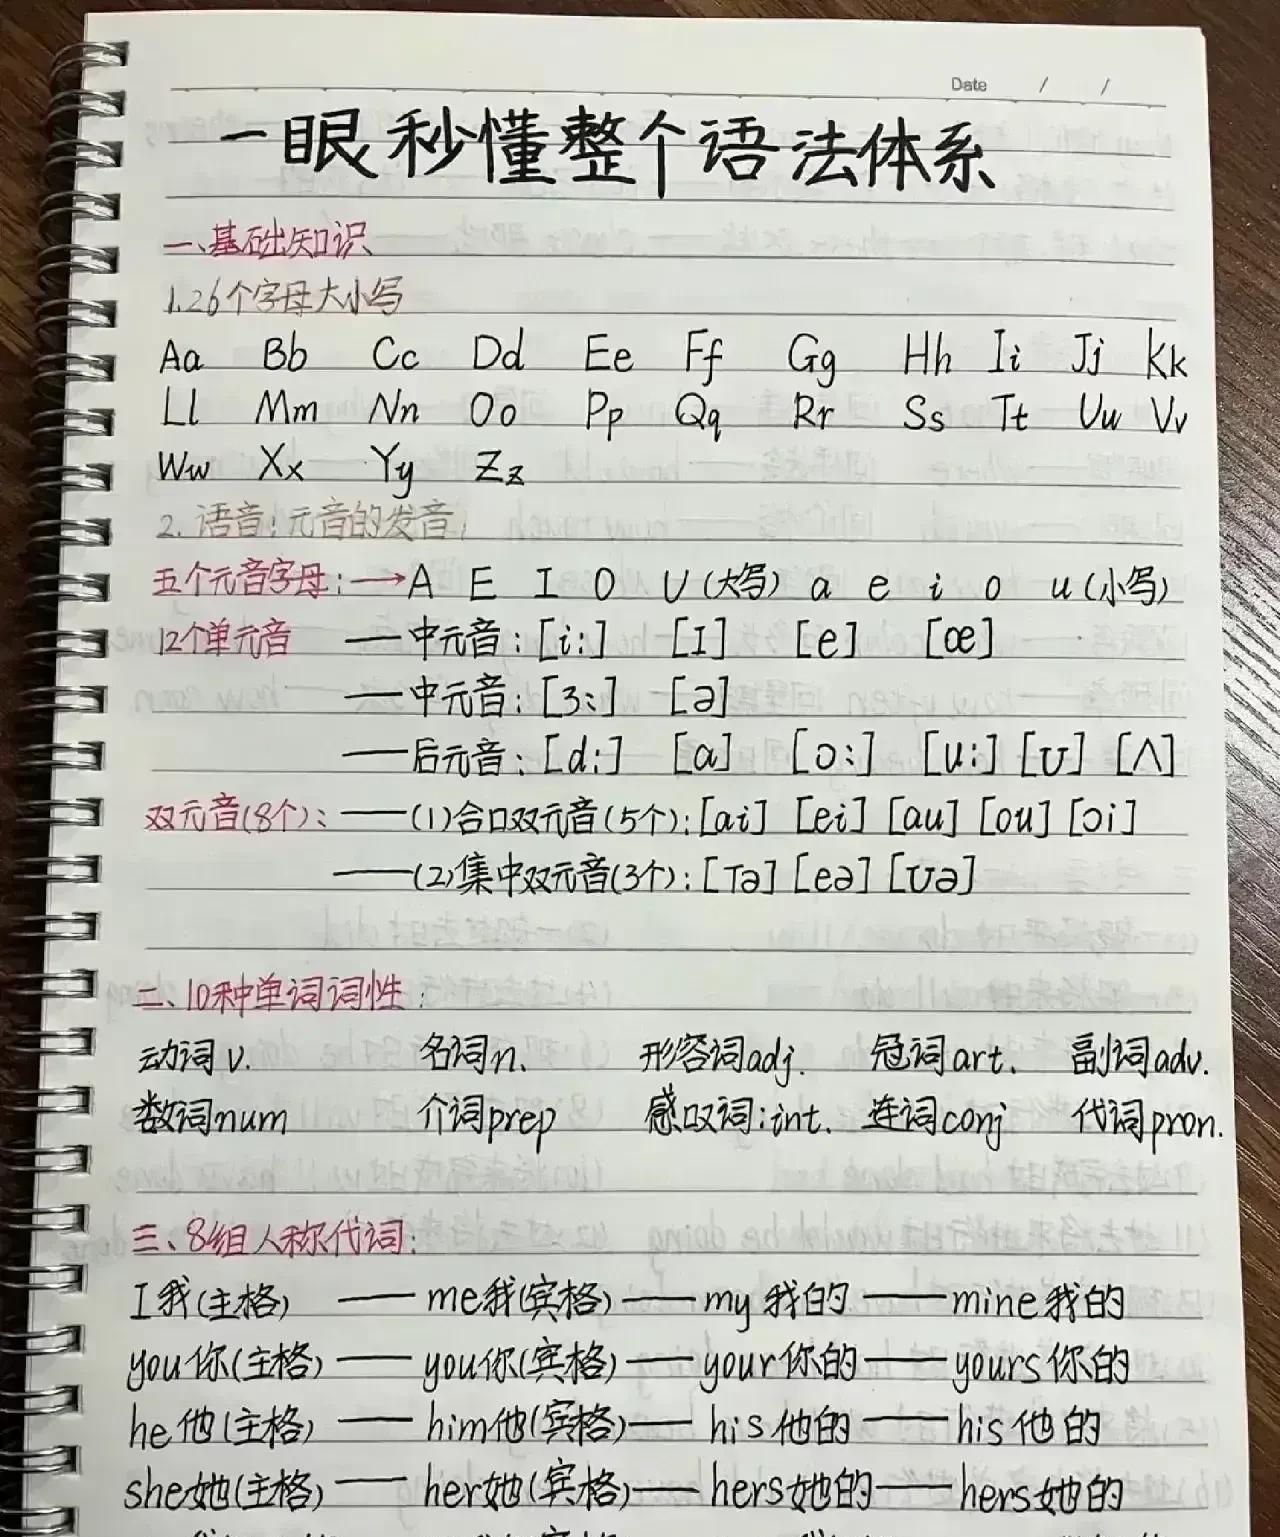 Date / /
一眼秒懂整个语法体系
一、基础知识
1.26个字母大小写
Aa Bb Cc Dd Ee Ff Gg Hh Ii Jj Kk
Ll Mm Nn Oo Pp Qq Rr Ss Tt Uu Vv
Ww Xx Yy Zz
2. 语音:元音的发音:
五个元音字母:→A E I O U(大写) a e i o u(小写)
12个单元音 —中元音:[i:] [I] [e] [œ]
—中元音:[3:] [ə]
—后元音:[d:] [a] [ɔ:] [u:] [ʊ] [Λ]
双元音(8个):—(1)合口双元音(5个):[ai] [ei] [au] [ou] [ɔi]
—(2)集中双元音(3个):[Tə] [eə] [ʊə]
二、10种单词词性:
动词v. 名词n. 形容词adj. 冠词art. 副词adv.
数词num 介词prep 感叹词:int. 连词conj 代词pron.
三、8组人称代词:
I我(主格) — me我(宾格) — my 我的 — mine我的
you你(主格) — you你(宾格) — your你的 — yours你的
he他(主格) — him他(宾格) — his他的 — his他的
she她(主格) — her她(宾格) — hers她的 — hers她的